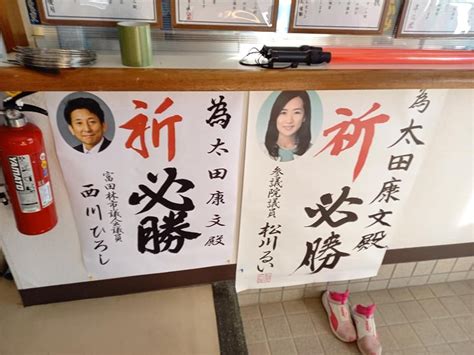 為太田康文殿
祈
必勝
富田林市議会議員
西川ひろし
為太田康文殿
祈
必勝
参議院議員
松川るい
YAMATO